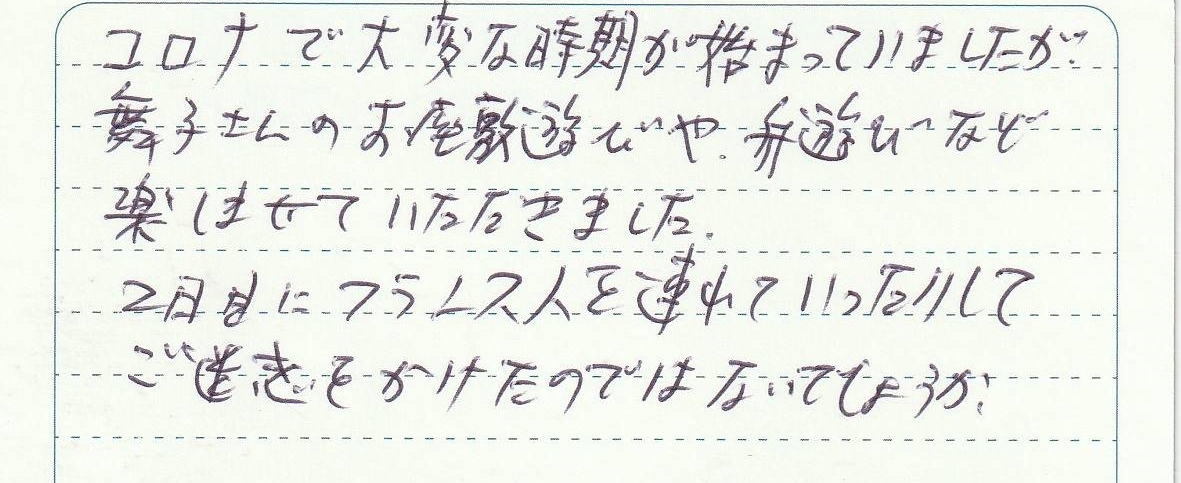 コロナで大変な時期が始まっていましたが
舞子さんのお座敷遊びや、舟遊びなど
楽しませていただきました.
2日目にフランス人を連れていったりして
ご迷惑をかけたのではないでしょうか.